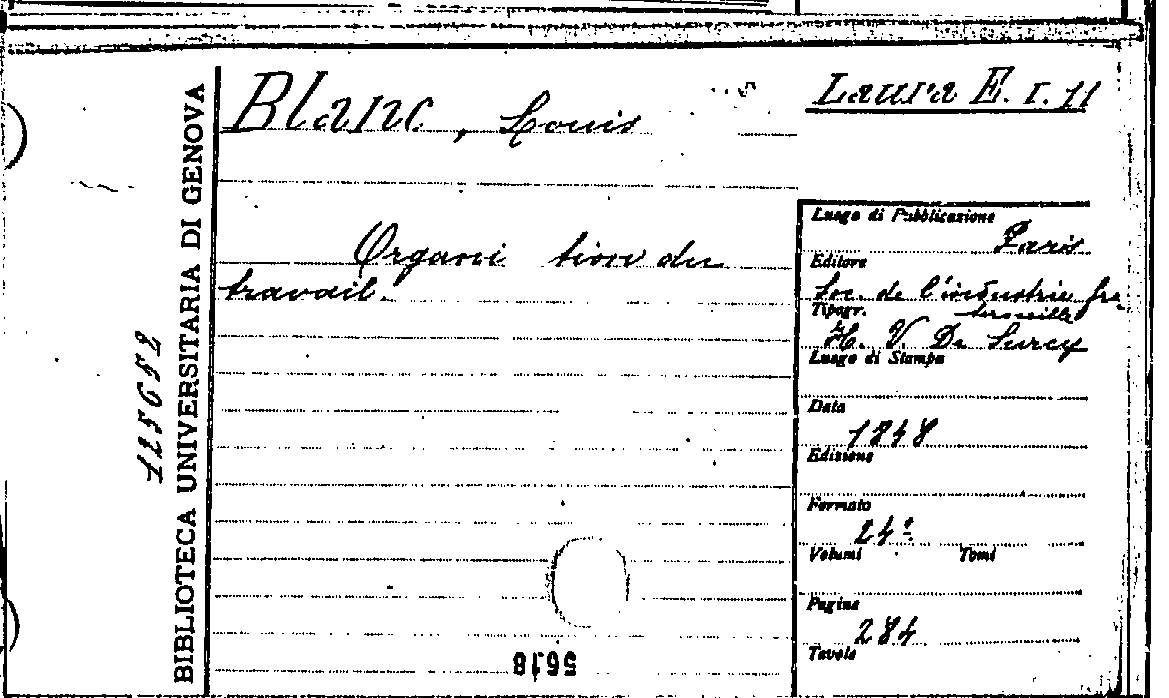 Blanc, Louis
Laura E. I. 11
Organi tion du
travail.
Luogo di Pubblicazione
Paris
Editore
Soc. de l'industrie fra
ternelle
Tipogr.
H. V. De Surcy
Luogo di Stampa
Data
1848
Edizione
Formato
24º
Volumi Tomi
Pagine
284
Tavole
BIBLIOTECA UNIVERSITARIA DI GENOVA
125652
5618